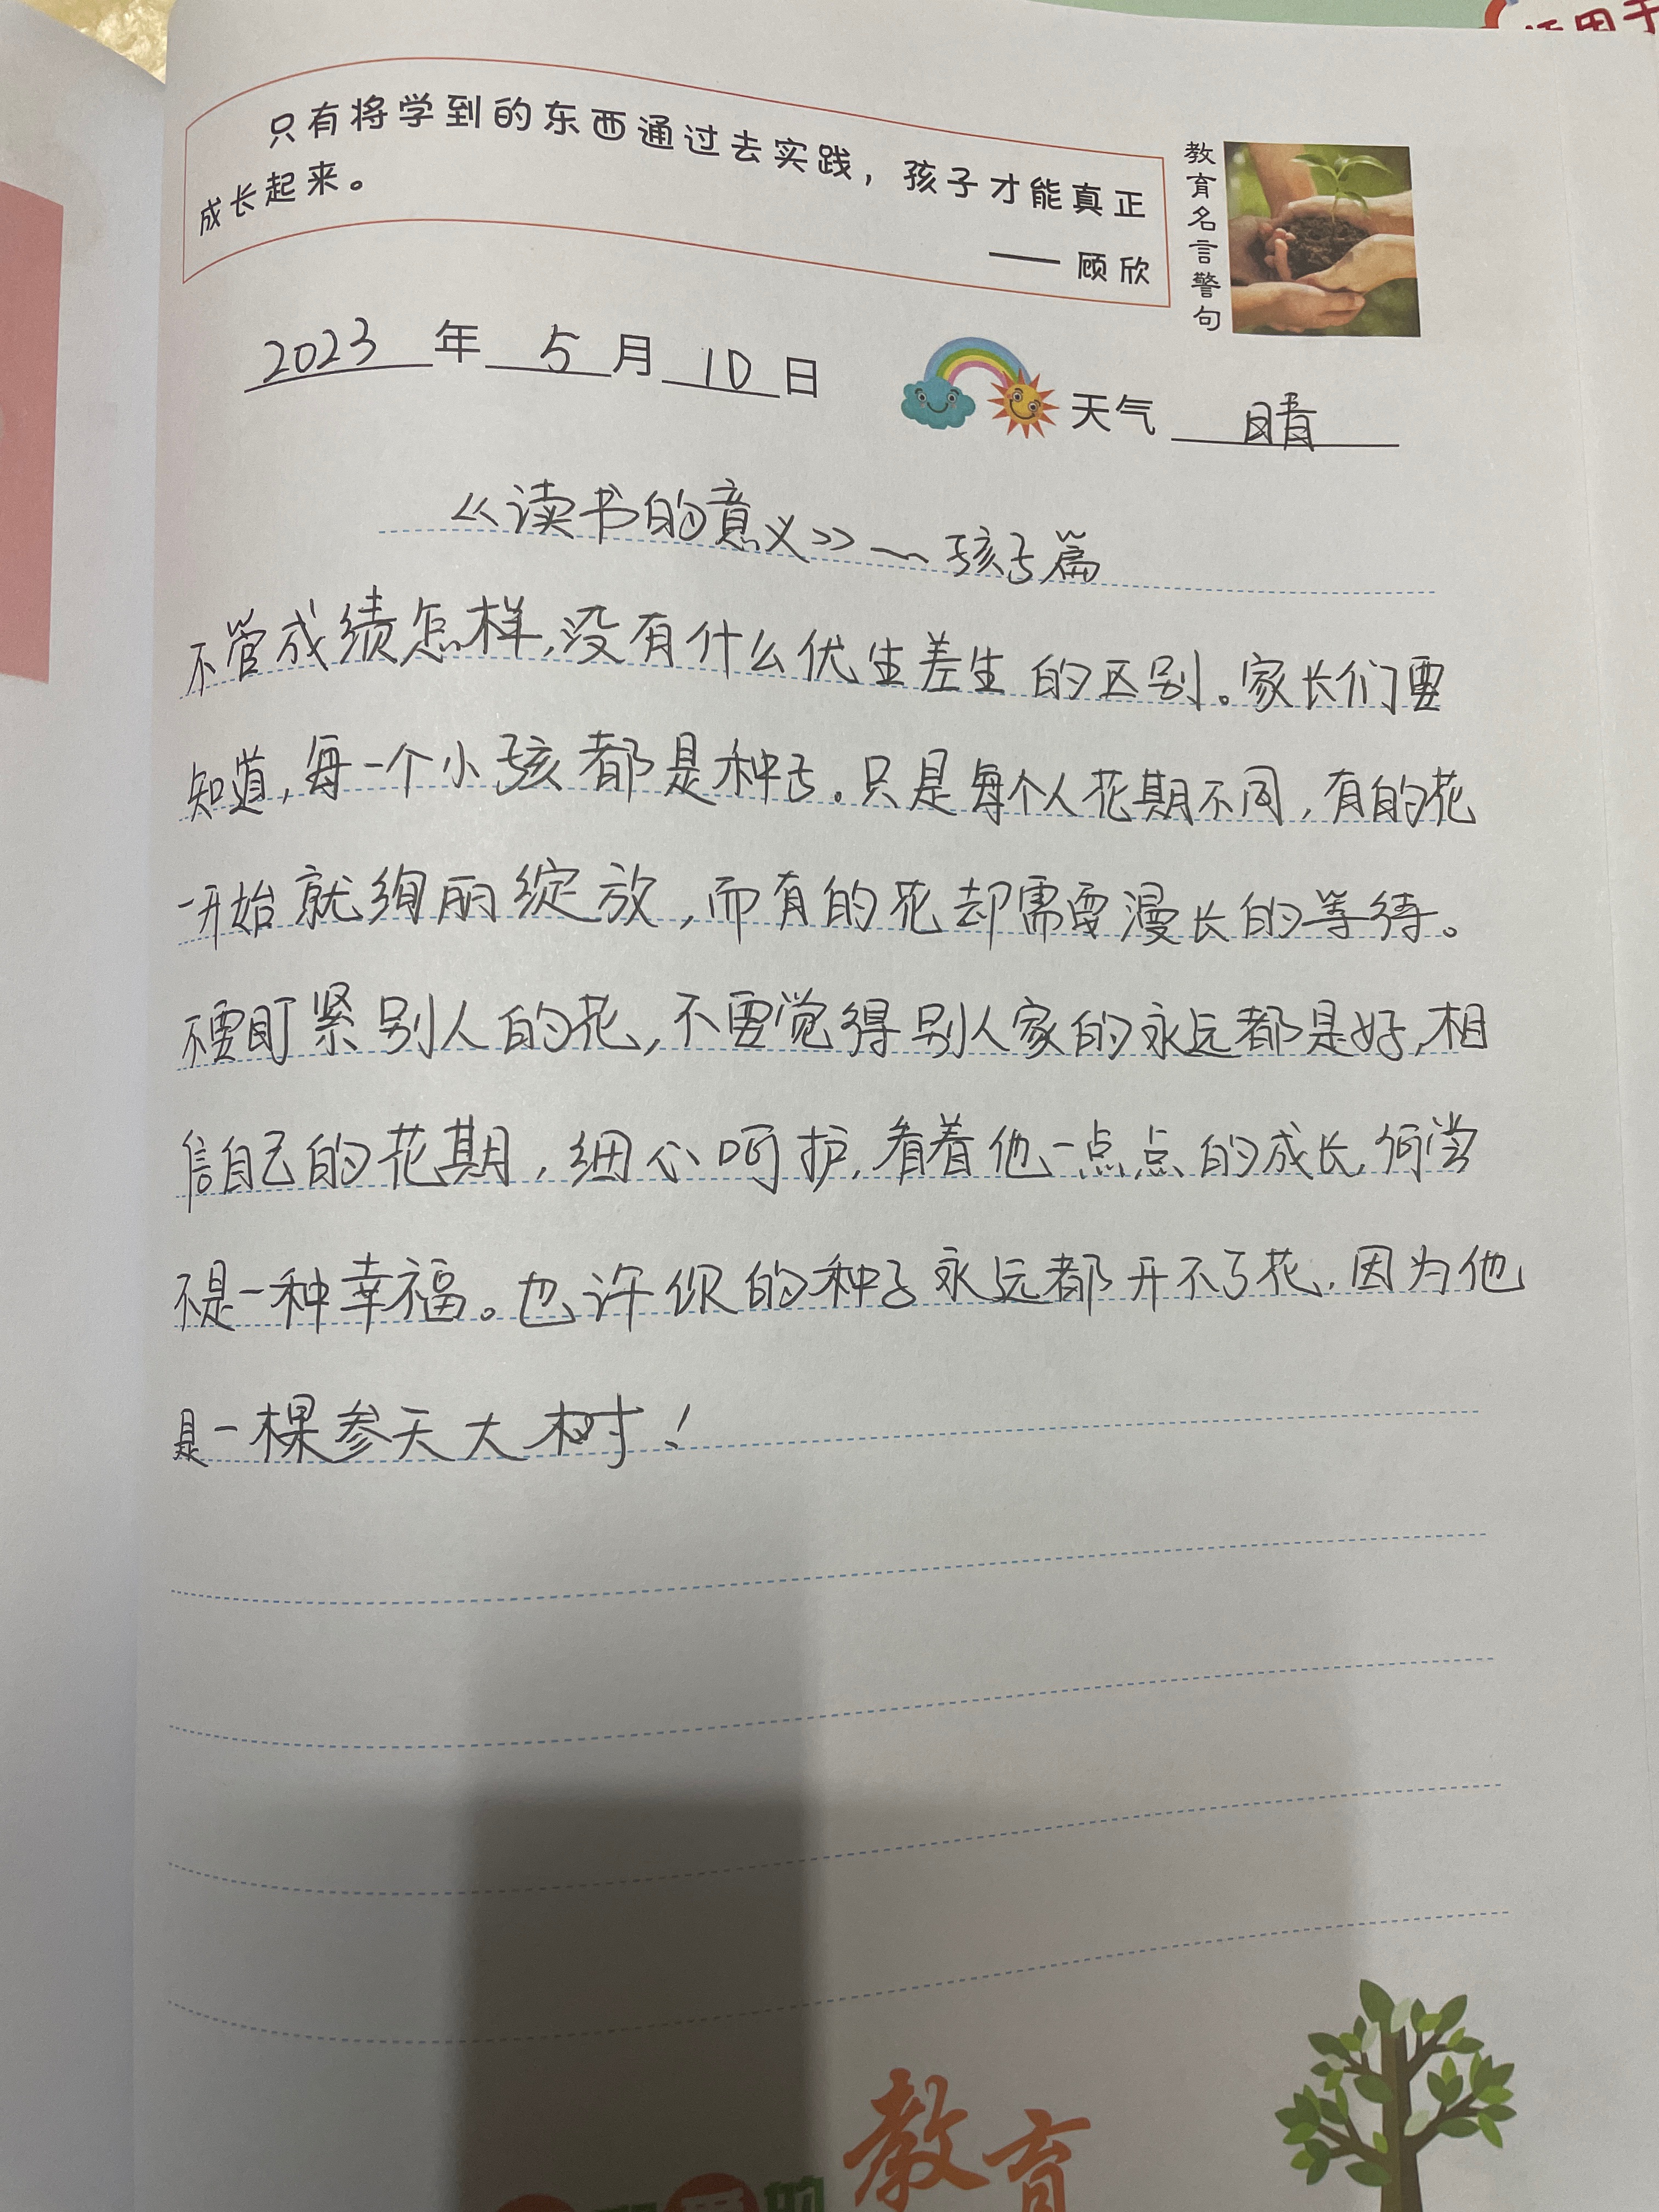 适用于
只有将学到的东西通过去实践，孩子才能真正
成长起来。
—— 顾欣
教育名言警句
2023年5月10日
天气 晴
《读书的意义》—孩子篇
不管成绩怎样,没有什么优生差生的区别。家长们要
知道,每一个小孩都是种子。只是每个人花期不同,有的花
一开始就绚丽绽放,而有的花却需要漫长的等待。
不要盯紧别人的花,不要觉得别人家的永远都是好,相
信自己的花期,细心呵护,看着他一点点的成长,何尝
不是一种幸福。也许你的种子永远都开不了花,因为他
是一棵参天大树!
的教育